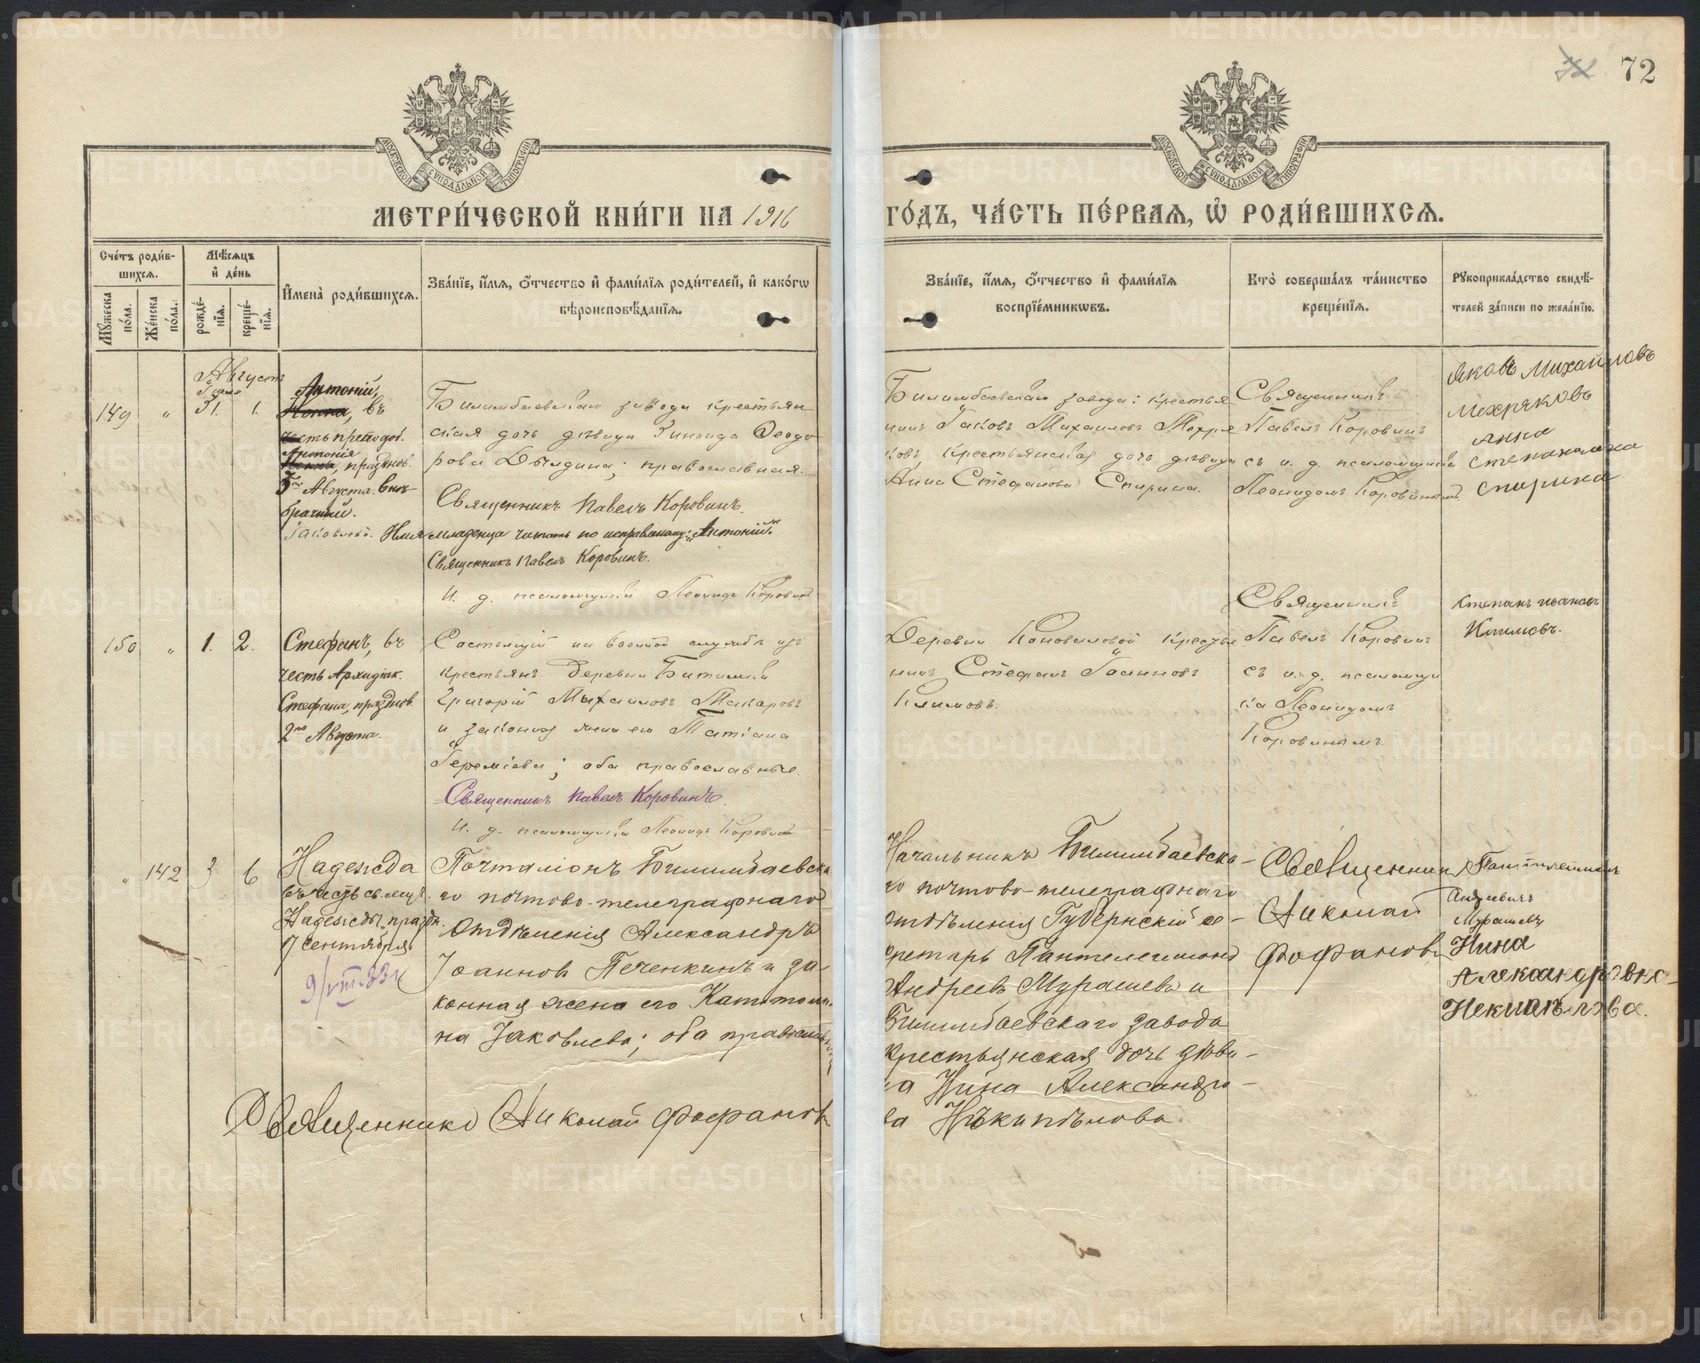 72
МЕТРИ́ЧЕСКОЙ КНИ́ГИ НА 1916
ГО́ДЪ, ЧА́СТЬ ПЕ́РВАЯ, Ѡ РОДИ́ВШИХСЯ.
Сче́тъ роди́в-
шихся.
Мѣ́сяцъ
и҆ де́нь
Му́жеска
по́ла.
Же́нска
по́ла.
рожде́-
нїя.
креще́-
нїя.
И҆мена̀ роди́вшихся.
Зва́нїе, и҆́мя, ѻ҆́тчество и҆ фами́лїя роди́телей, и҆ како́гѡ
вѣроисповѣ́данїя.
Зва́нїе, и҆́мя, ѻ҆́тчество и҆ фами́лїя
воспрїе́мникѡвъ.
Кто̀ соверша́лъ та́инство
креще́нїя.
Рꙋкоприкла́дство свидѣ́-
телей за́писи по жела́нїю.
Августъ
149 " 31. 1.
Антоній,
въ
честь преподоб.
Антонія
празднов.
Августа. Внѣ-
брачный.
Билимбаевскаго завода крестьян
ская дочь дѣвица Зинаида Ѳеодо
рова; православная.
Священникъ Павелъ Коровинъ.
Имя младенца читать по исправленному: „Антоній".
Священникъ Павелъ Коровинъ.
И. д. псаломщика Леонидъ Коровинъ
Билимбаевскаго завода: крестья
нинъ Іаковъ Михаиловъ Мехря
ковъ крестьянская дочь дѣвица
Анна Стефанова Спирина.
Священникъ
Павелъ Коровинъ
съ и. д. псаломщика
Леонидомъ Коровинымъ
Яковъ Михайловъ
Мехряковъ
Анна
Степановна
Спирина
150 " 1. 2.
Стефанъ, въ
честь Архидіак.
Стефана, празднов
2го Августа.
Состоящій на военной службѣ изъ
крестьянъ деревни Битимки
Григорій Михаиловъ Макаровъ
и законная жена его Татіана
Іереміева; оба православные.
Священникъ Павелъ Коровинъ.
И. д. псаломщика Леонидъ Коровинъ
Деревни Коноваловой крестья
нинъ Стефанъ Іоанновъ
Климовъ.
Священникъ
Павелъ Коровинъ
съ и. д. псаломщи
ка Леонидомъ
Коровинымъ.
Степанъ
Климовъ.
" 142 3 6
Надежда
въ честь св. муч.
Надежды, праздн.
17 сентября
Почталіонъ Билимбаевска
го почтово-телеграфнаго
Отдѣленія Александръ
Іоанновъ Печенкинъ и за-
конная жена его Капитоли-
на Іаковлева; оба православные
Священникъ Николай Фофановъ
Начальникъ Билимбаевска-
го почтово-телеграфнаго
отдѣленія Губернскій се-
кретарь Пантелеимонъ
Андреевъ Мурашевъ и
Билимбаевскаго завода
крестьянская дочь дѣви-
ца Нина Александро-
ва Нѣкипѣлова.
Священникъ
Николай
Фофановъ
Пантелеимонъ
Андреевичъ
Мурашевъ
Нина
Александровна
Некипѣлова.
METRIKI.GASO-URAL.RU